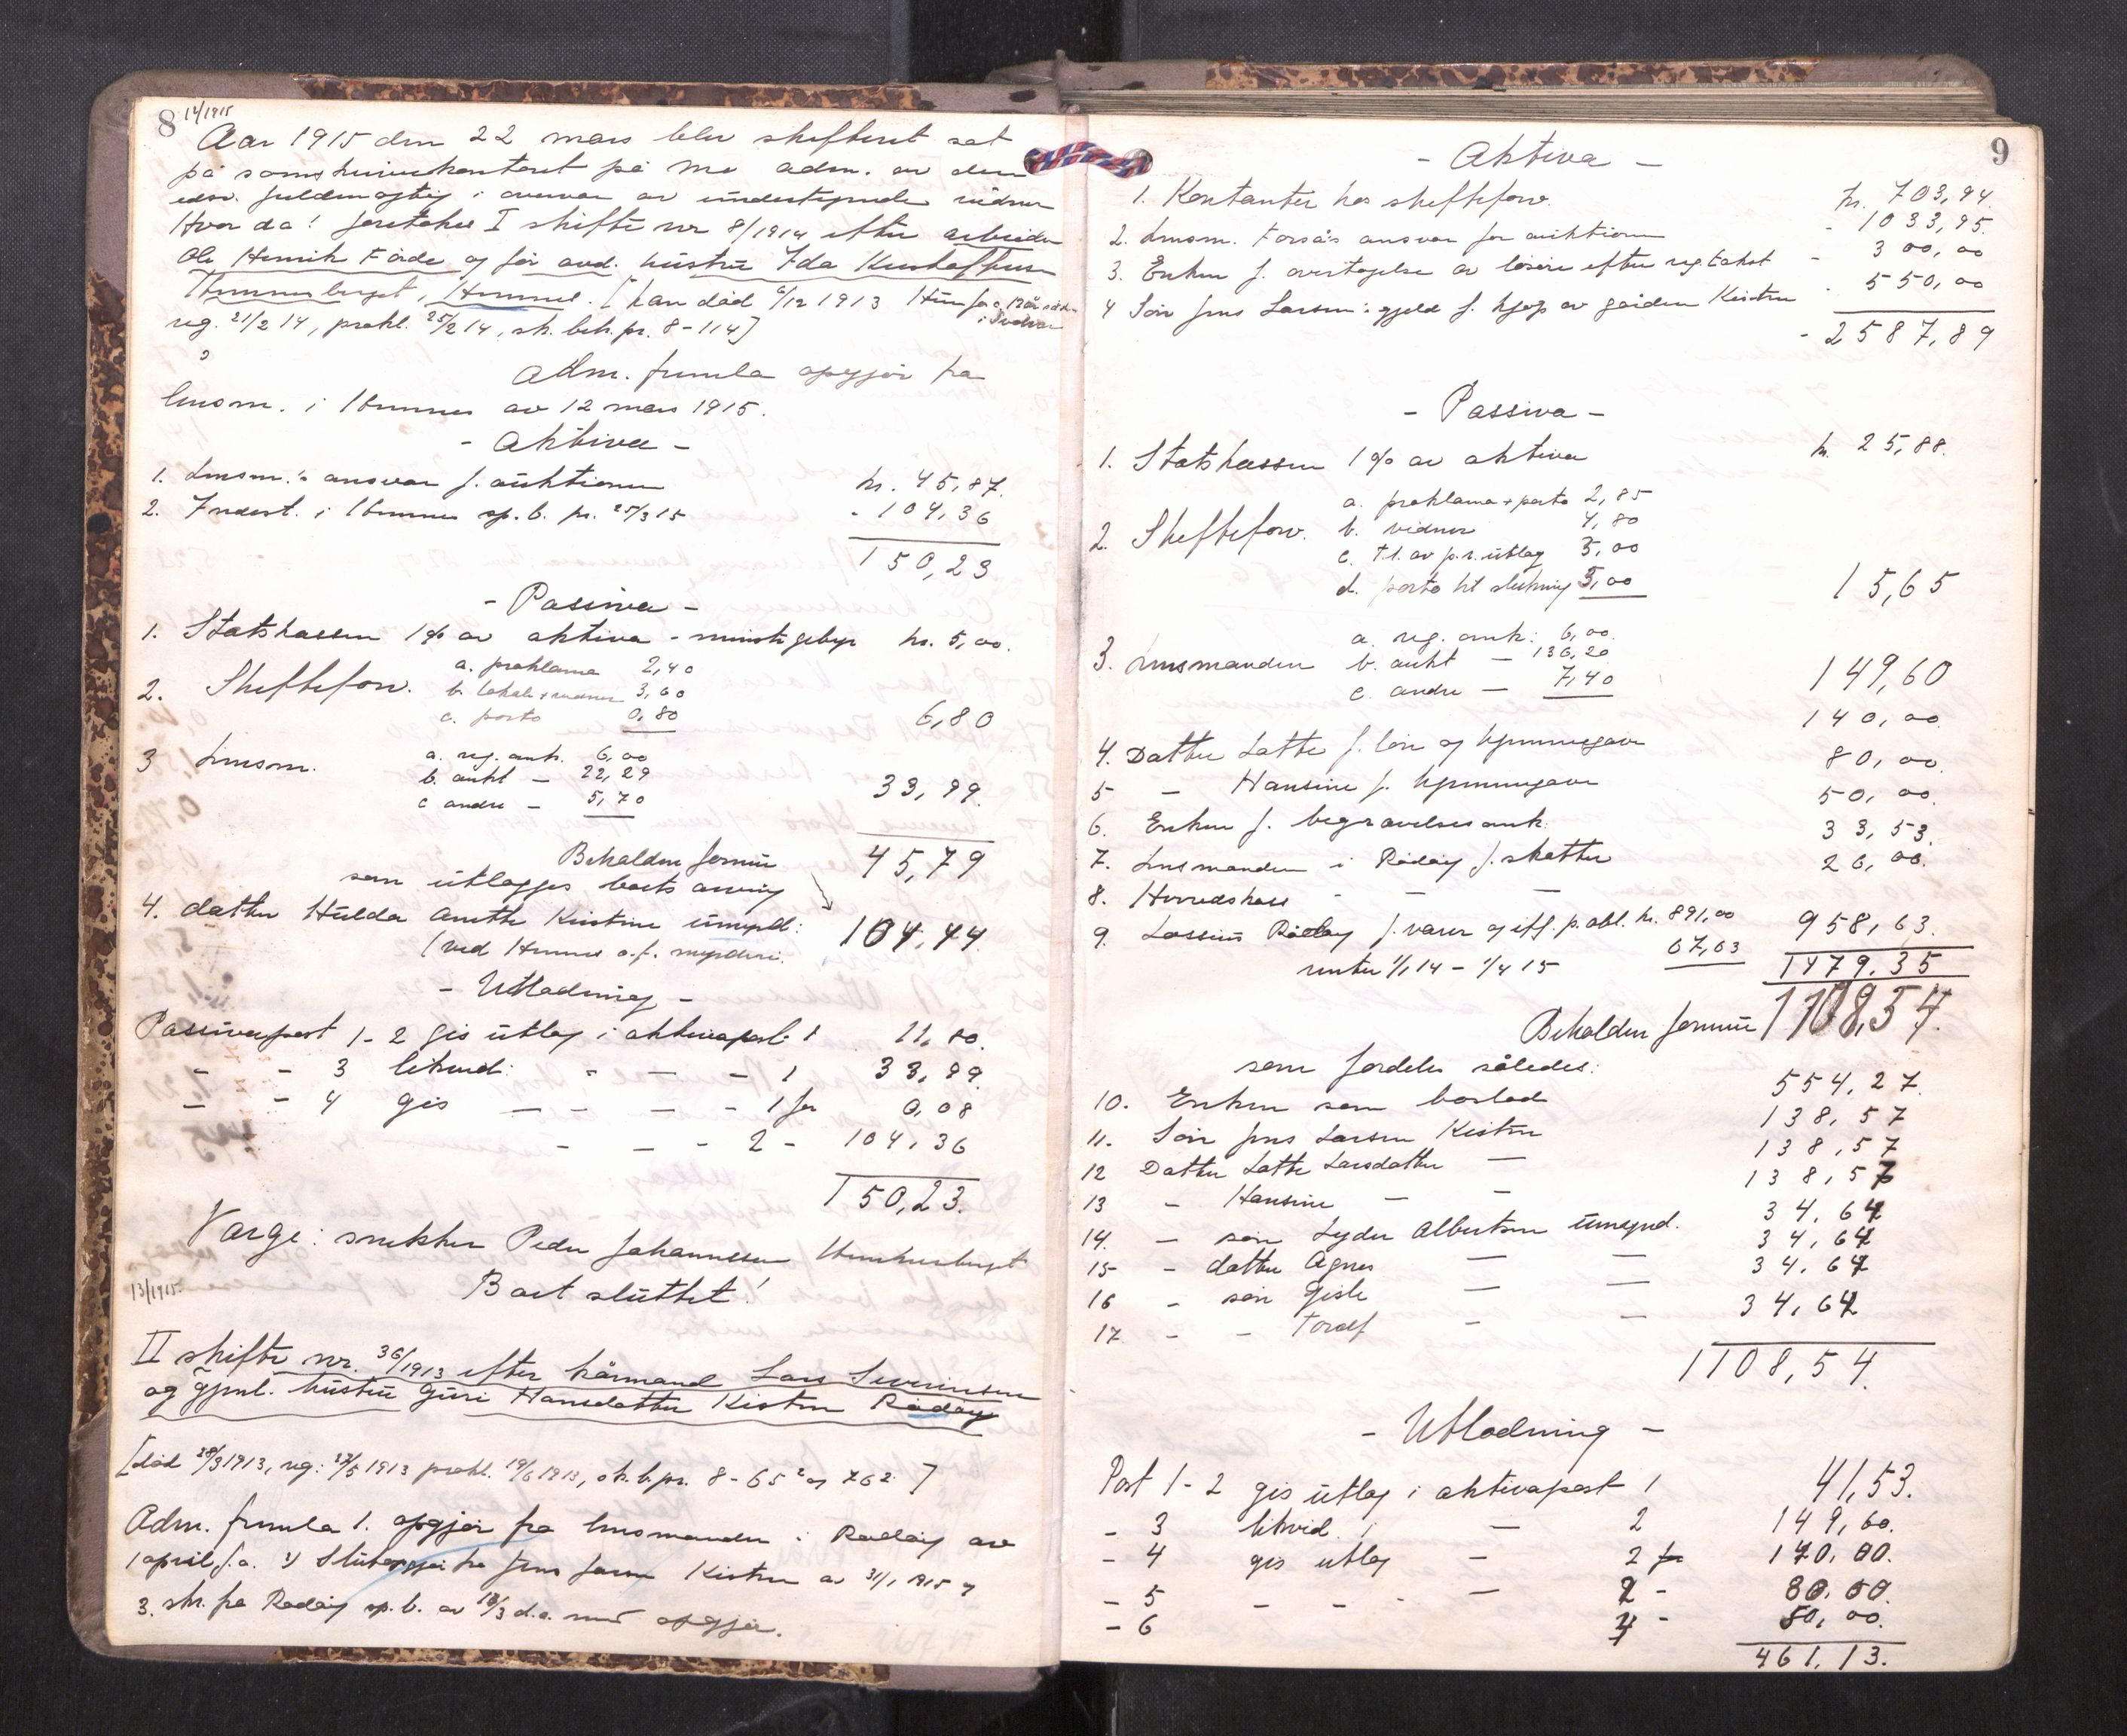 8 14/1915
Aar 1915 den 22 mars blev skifteret sat
på sorenskriverkontoret på Mo adm. av den
edsv. fuldmægtig i overvær av undertegnede vidner
Hvor da! foretokes I skifte nr 8/1914 efter arbeider
Ole Henrik Förde og før avd. hustru Ida
Hemnes. [han död 6/12 1913
reg. 21/2 14, prokl. 25/2 14, sk. beh. pr. 8-114]
Adm. fremla opgjør fra
lensm. i Hemnes av 12 mars 1915.
- Aktiva -
1. Lensm.s ansvar f. auktionen kr. 45,87.
2. Indest. i Hemnes sp.b. pr. 25/3 15 - 104,36
150,23
- Passiva -
1. Statskassen 1% av aktiva - minstegebyr kr. 5,00.
2. Skifteforv. a. proklama 2,40
b. lokale + vidner 3,60
c. porto 0,80 6,80
3 Lensm. a. reg. omk. 6,00
b. aukt - 22,29
c andre - 5,70 33,99.
45,79
Beholden formue
som utlægges boets arving
4. datter Hulda Anette Kristine umynd: 104,44
(ved Hemnes o.f. myndleri.
- Utlodning -
Passivapost 1-2 gis utlæg i aktivapost 1 11,80.
- - 3 likvid: - - - 1 33,99.
- - 4 gis - - - - 1 for 0,08
- - - 2 - 104,36
150,23.
Værge: snekker Peder Johannessen
13/1915. Boet sluttet!
II skifte nr. 36/1913 efter kårmand Lars Severinsen
og gjenl. hustru Guri Hansdatter Kistrn Rödöy
[död 28/3 1913, reg: 27/5 1913 prokl. 19/6 1913, sk.b.pr. 8-65² og 762]
Adm. fremla 1. opgjør fra lensmanden i Rödöy av
1 april f.a. 2) Slutopgjør fra Jens Larsen Kistrn av 31/1 1915 og
3. skr. fra Rödöy sp.b. av 18/3 d.a. med opgjør.
9
- Aktiva -
1. Kontanter hos skifteforv. kr. 703,94.
2. Lensm. Forsås ansvar for auktionen - 1033,95.
3. Enken f. overtagelse av løsøre efter reg.takst - 300,00
4 Søn Jens Larsen: gjeld f. kjøp av gården Kistrn - 550,00
- 2587,89
- Passiva -
1. Statskassen 1% av aktiva kr. 25,88.
2. Skifteforv. a. proklama + porto 2,85
b. vidner 4,80
c. t.l. av p.r. utlæg 3,00
d. porto til slutning 5,00 15,65
3. Lensmanden a. reg. omk: 6,00.
b. aukt - 136,20
c. andre - 7,40 149,60
4. Datter Lotte f. løn og hjemmegave 140,00.
5 - Hansine f. hjemmegave 80,00.
6. Enken f. begravelsesomk. 50,00.
7. Lensmanden i Rödöy f. skatter 33,53.
8. Herredskass - - - 26,00.
9. Lossius Rödöy f. varer og eff. p. obl. kr. 891,00
renter 1/1 14 - 1/4 15 67,63 958,63.
1479.35
Beholden formue 1108,54.
som fordeles således:
10. Enken som boslod 554,27.
11. Søn Jens Larsen Kistrn 138,57
12 Datter Lotte Larsdatter - 138,57
13 - Hansine - - 138,57
14. - søn Lyder Albertsen umynd. 34,64
15 - datter Agnes - - 34,64
16 - søn Gisle - - 34,64
17 - - Toralf - - 34,64
1108,54.
- Utlodning -
Post 1-2 gis utlæg i aktivapost 1 41,53.
- 3 likvid. i - 2 149,60.
- 4 gis utlæg - 2 for 140,00.
- 5 - - - - 2 - 80,00.
- 6 4 - 50,00.
461,13.